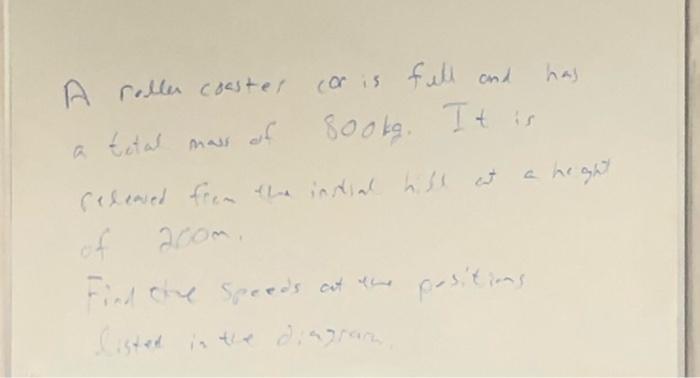 A roller coaster car is full and has
a total mass of 800kg. It is
released from the initial hill at a height
of 200m.
Find the speeds at the positions
listed in the diagram.